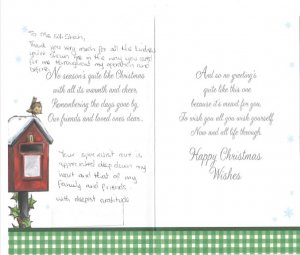 To Me
Thank you very much for all the kindness
you've shown me in the way you cared
for me throughout my operation and
before.
No season's quite like Christmas
with all its warmth and cheer,
Remembering the days gone by,
Our friends and loved ones dear...
Your specialist care is
appreciated deep down my
heart and that of my
family and friends
with deepest gratitude
And so no greeting's
quite like this one
because it's meant for you,
To wish you all you wish yourself
Now and all life through.
Happy Christmas
Wishes